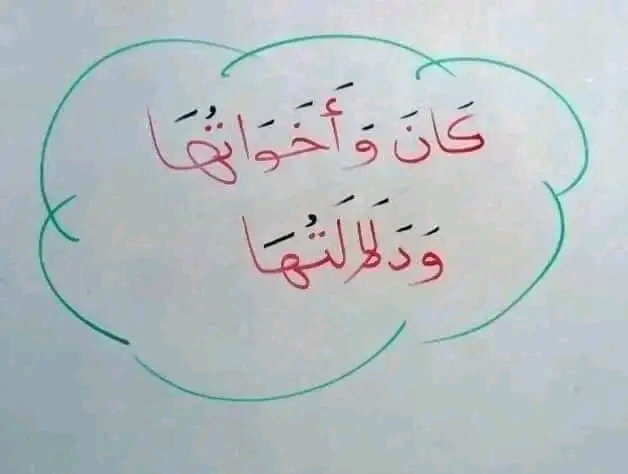 كَانَ وَأَخَوَاتُهَا
وَدَلَالَتُهَا